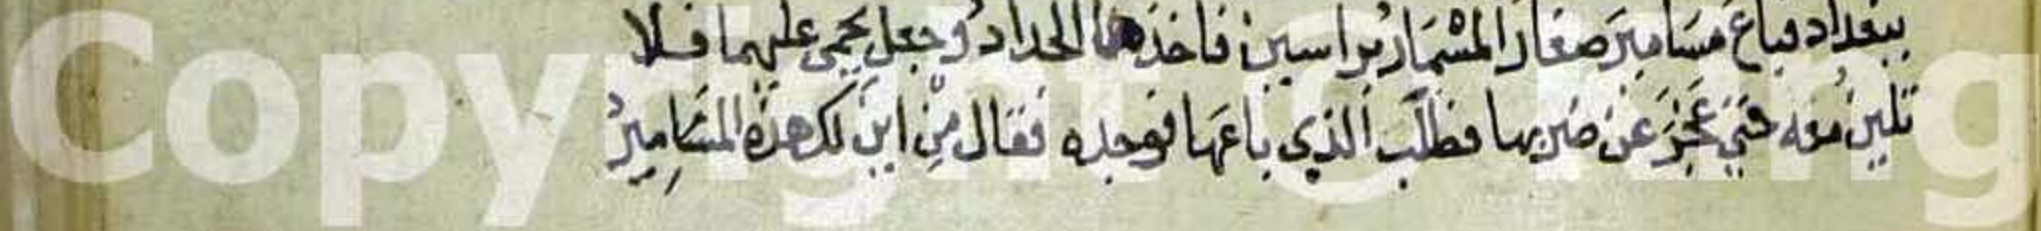 ببغداد فباع مسامير صغار المسمار براسين فاخذها الحداد وجعل يحمى عليهما فلا
تلين معه حتى عجز عن ضربها فطلب الذي باعها فوجده فقال من اين لك هذه المسامير
Copyright © King